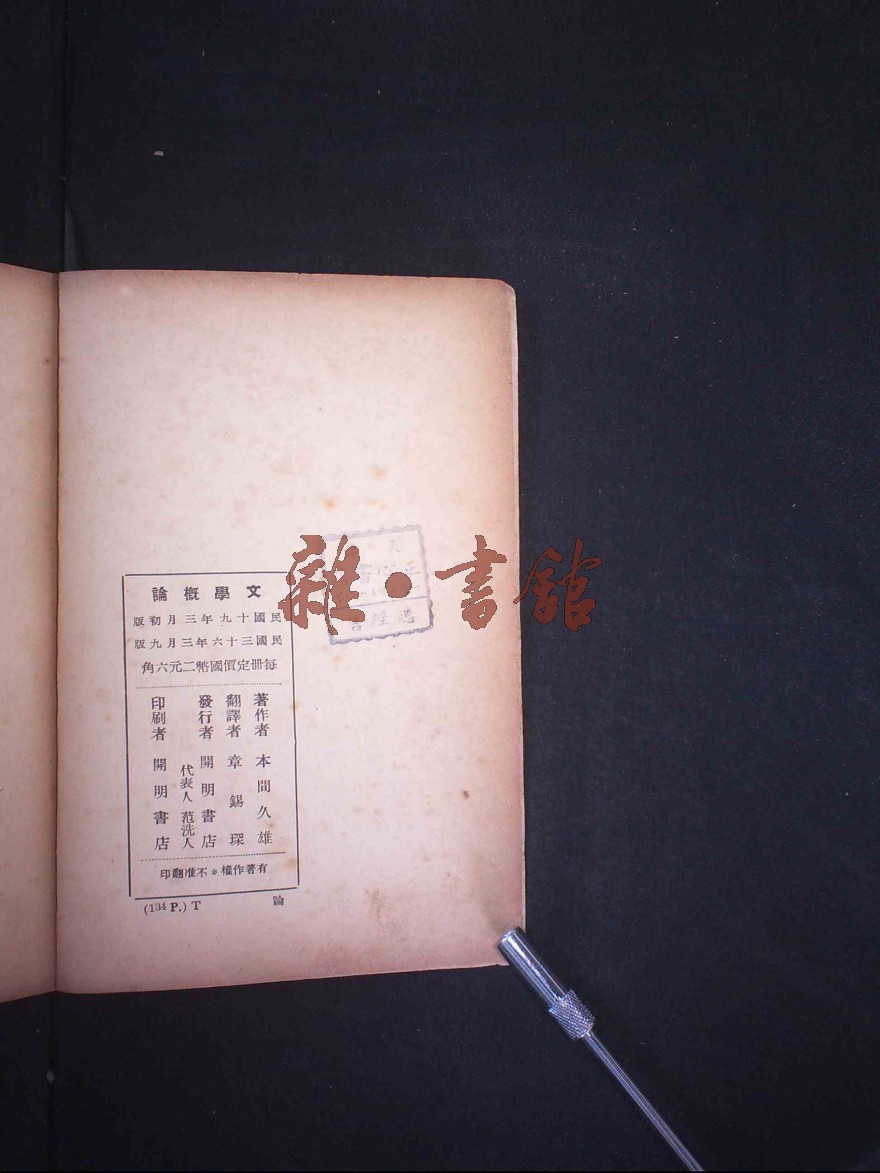 文學概論
民國十九年三月初版
民國三十六年三月九版
每冊定價國幣二元六角
著作者 本間久雄
翻譯者 章錫琛
發行者 開明書店
代表人 范洗人
印刷者 開明書店
有著作權＊不准翻印
論
(134 P.) T
雜•書館